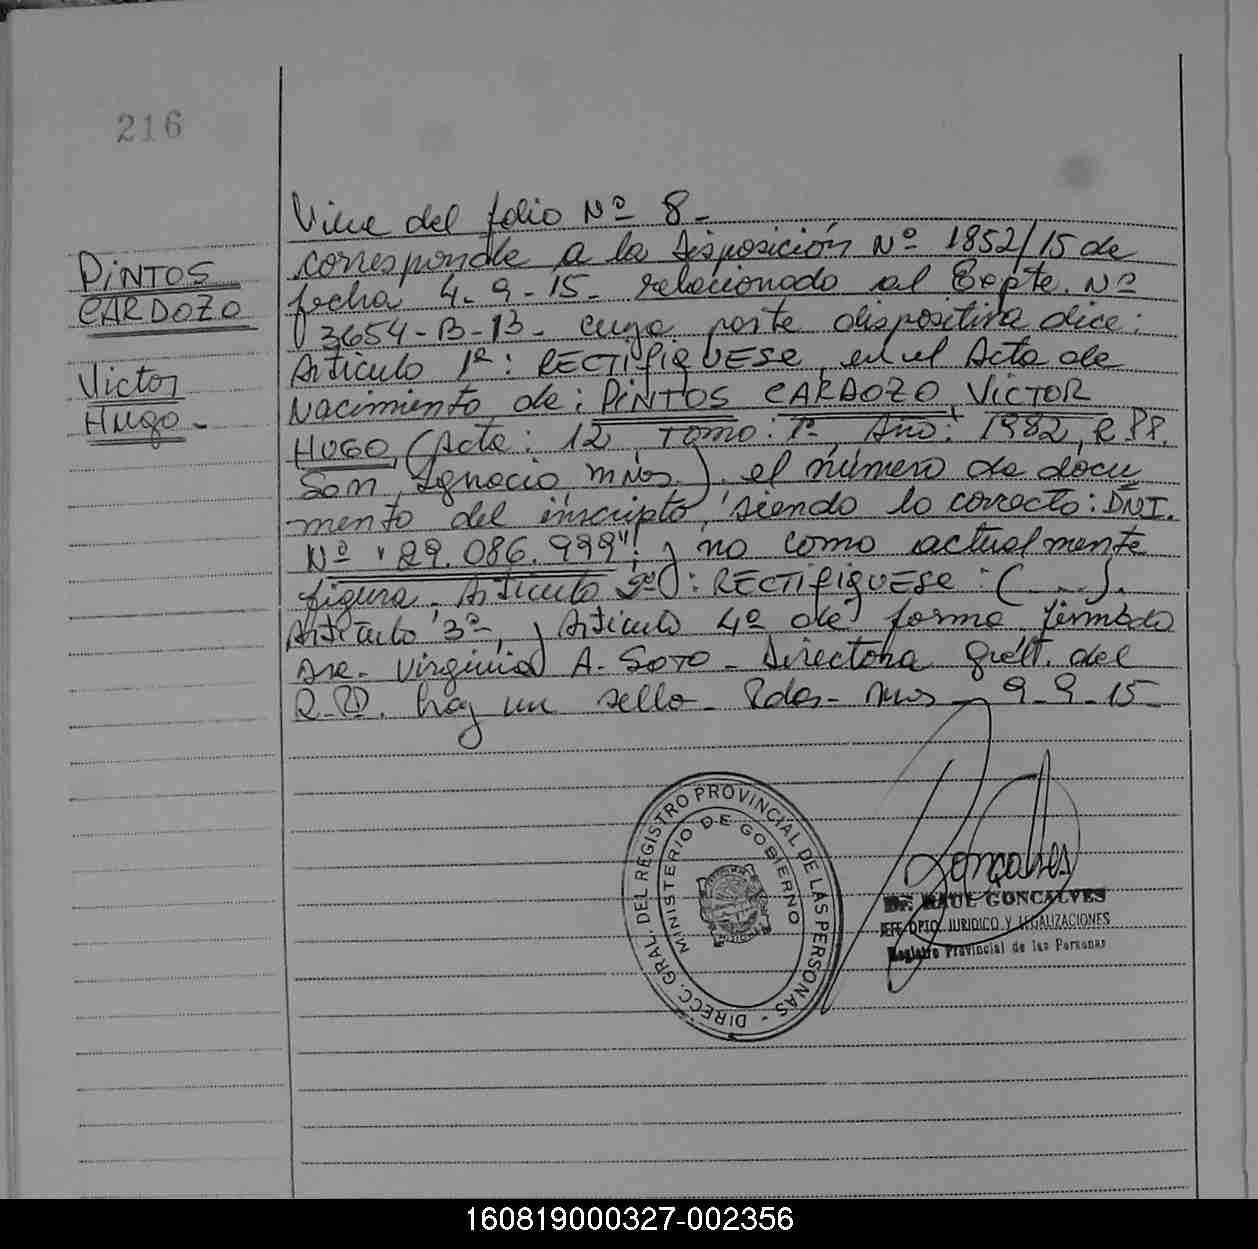 216
PINTOS
CARDOZO
Victor
Hugo -
Viene del folio Nº 8 -
corresponde a la Disposición Nº 1852/15 de
fecha 4-9-15- relacionado al Expte. Nº
3654-B-13- cuya parte dispositiva dice:
Articulo 1º: RECTIFIQUESE, en el Acta de
Nacimiento de: PINTOS CARDOZO, VICTOR
HUGO, (Acta: 12, Tomo: 1º, Año: 1982, R.PP.
San Ignacio, Mnes.), el número de docu
mento del inscripto, siendo lo correcto: DNI.
Nº "29.086.999" y no como actualmente
figura. Articulo 2º: RECTIFIQUESE: (...).
Articulo 3º, y Articulo 4º de forma firmado
Dra. Virginia A. SOTO - Directora Gral. del
R.P. hay un sello - Pdas - Mnes - 9-9-15-
DIRECC. GRAL. DEL REGISTRO PROVINCIAL DE LAS PERSONAS -
MINISTERIO DE GOBIERNO
Goncalves
Dr. RAUL GONCALVES
JEFE DPTO. JURIDICO Y LEGALIZACIONES
Registro Provincial de las Personas
160819000327-002356